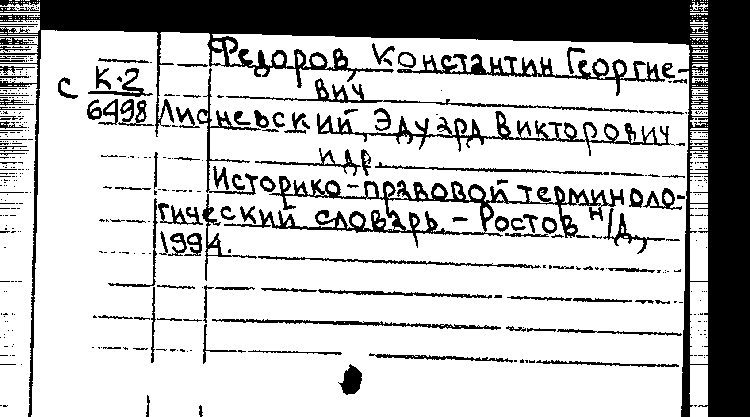 Федоров, Константин Георгие-
вич
с К-2
6498
Лисневский, Эдуард Викторович
и др.
Историко-правовой терминоло-
гический словарь. – Ростов н/Д.,
1994.